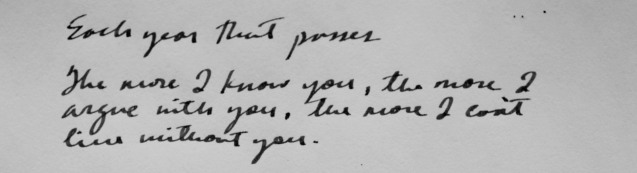 Each year that passes
The more I know you, the more I
argue with you, the more I can't
live without you.